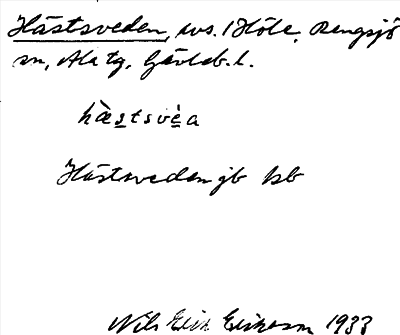 Hästsveden, ävs. i Höle, Rengsjö
sn, Ala tg, Gävleb. l.
hä̀stsvèa
Hästsveden jb kb
Nils Erik Eriksson 1933